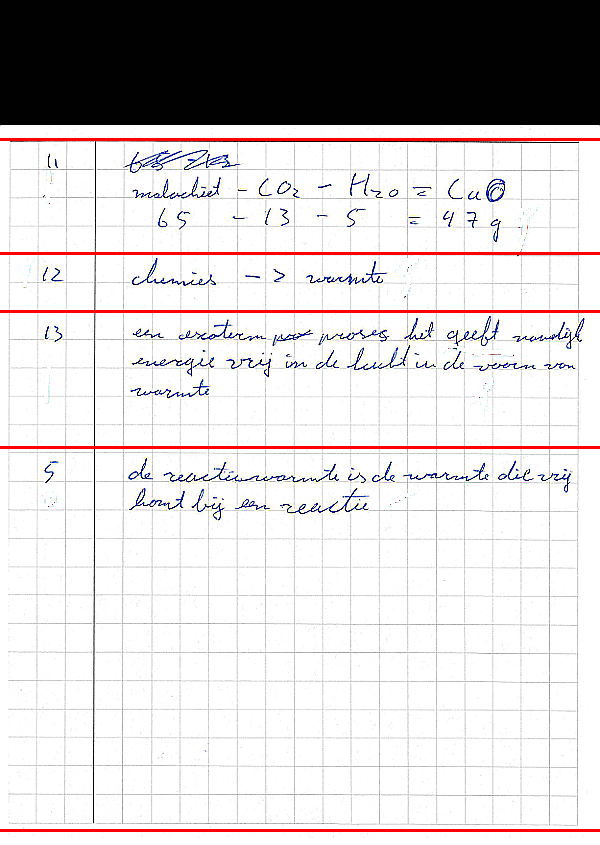 11
malachiet - CO2 - H2O = CuO
65 - 13 - 5 = 47 g
12 chemies -> warmte
13 een exoterm proses het geeft namelijk
energie vrij in de lucht in de voorm van
warmte
5 de reactiewarmte is de warmte die vrij
komt bij een reactie